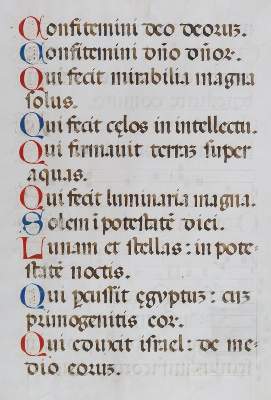 Confitemini deo deoruꝫ.
Confitemini dño dñor.
Qui fecit mirabilia magna
solus.
Qui fecit cęlos in intellectu.
Qui firmauit terraꝫ super
aquas.
Qui fecit luminaria magna.
Solem ī potestatē diei.
Lunam et stellas: in pote-
statē noctis.
Qui ꝑcussit ęgyptuꝫ: cuꝫ
primogenitis eor.
Qui eduxit israel: de me-
dio eoruꝫ.